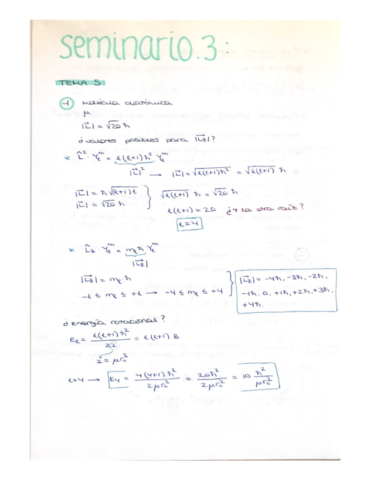 seminario 3:
TEMA 5
1 molécula diatómica
μ
|L⃗| = √20 ħ
¿valores posibles para |L⃗z|?
* L̂² Yₗᵐ = ℓ(ℓ+1)ħ² Yₗᵐ
|L⃗|² → |L⃗| = √ℓ(ℓ+1)ħ² = √ℓ(ℓ+1) ħ
|L⃗| = ħ √(ℓ+1)ℓ
|L⃗| = √20 ħ
√ℓ(ℓ+1) ħ = √20 ħ
ℓ(ℓ+1) = 20 ¿y la otra raíz?
ℓ=4
* L̂z Yₗᵐ = mₗ ħ Yₗᵐ
|L⃗z|
|L⃗z| = mₗ ħ
-ℓ ≤ mₗ ≤ +ℓ → -4 ≤ mₗ ≤ +4
|L⃗z| = -4ħ, -3ħ, -2ħ,
-1ħ, 0, +1ħ, +2ħ, +3ħ,
+4ħ.
¿energía rotacional?
Eℓ = ℓ(ℓ+1)ħ² / 2I = ℓ(ℓ+1) B
I = μr₀²
ℓ=4 → E₄ = 4(4+1)ħ² / 2μr₀² = 20ħ² / 2μr₀² = 10 ħ² / μr₀²